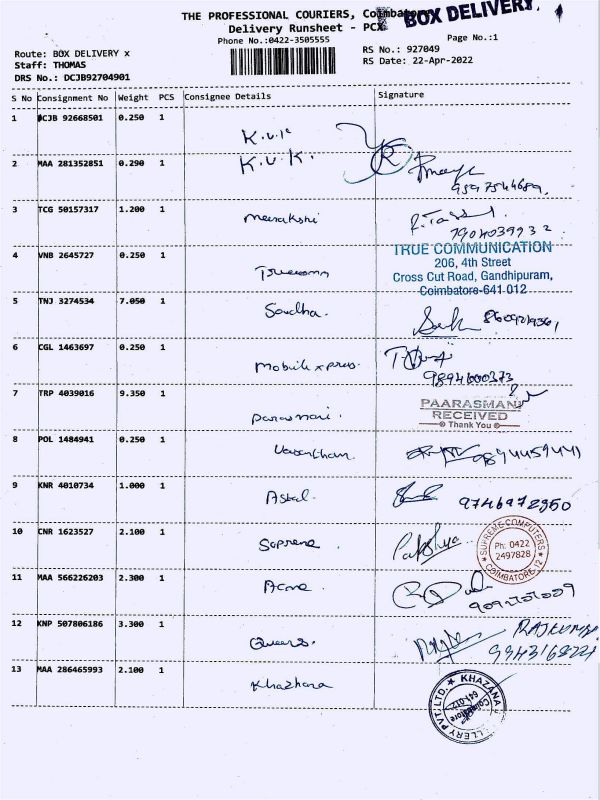 THE PROFESSIONAL COURIERS, Coimbatore
BOX DELIVERY.
Delivery Runsheet - PCX
Phone No.:0422-3505555
Page No.:1
Route: BOX DELIVERY x
RS No.: 927049
Staff: THOMAS
RS Date: 22-Apr-2022
DRS No.: DCJB92704901
S No Consignment No Weight PCS Consignee Details Signature
1 CJB 92668501 0.250 1 K.U.K
2 MAA 281352851 0.290 1 K.U.K.
9597544689
3 TCG 50157317 1.200 1 Meenakshi
7904039932
4 VNB 2645727 0.250 1 Truecomm
TRUE COMMUNICATION
206, 4th Street
Cross Cut Road, Gandhipuram,
Coimbatore-641 012
5 TNJ 3274534 7.050 1 Saudha.
6 CGL 1463697 0.250 1 Mobile xpress.
9894600373
7 TRP 4039016 9.350 1
PAARASMANI
RECEIVED
Thank You
8 POL 1484941 0.250 1 Vasantham
9894459441
9 KNR 4010734 1.000 1
9746972950
10 CNR 1623527 2.100 1 Supreme
SUPREME COMPUTERS
Ph: 0422
2497828
COIMBATORE-12
11 MAA 566226203 2.300 1 Acme
12 KNP 507806186 3.300 1 Queens.
RAJKUMAR
13 MAA 286465993 2.100 1 Khazhana
KHAZANA JEWELLERY PVT. LTD.
Coimbatore
641-012